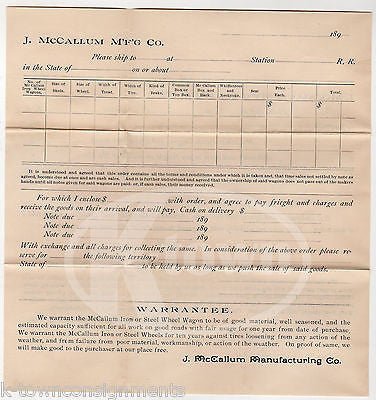 J. McCallum M'f'g Co.
189
Please ship to at Station R. R.
in the State of on or about
No. of McCallum Iron Wheel Wagons. Size of Skein. Size of Wheel. Width of Tread. Width of Tire. Kind of Brake. Common Box or Top Box. McCallum Box and Rack. Whiffletrees and Neckyoke. Seat Price Each. Total.
$ $
It is understood and agreed that this order contains all the terms and conditions under which it is taken, and that time sales not settled by note as
agreed, become due at once and are cash sales. And it is further understood and agreed that the ownership of said wagons does not pass out of the makers
hands until all notes given for said wagons are paid, or, if cash sales, their money received.
For which I enclose $ with order, and agree to pay frieght and charges and
receive the goods on their arrival, and will pay, Cash on delivery $
Note due 189
Note due 189
Note due 189
With exchange and all charges for collecting the same. In consideration of the above order please re-
serve for the following territory
State of to be held by us as long as we push the sale of said goods.
WARRANTEE.
We warrant the McCallum Iron or Steel Wheel Wagon to be of good material, well seasoned, and the
estimated capacity sufficient for all work on good roads with fair usage for one year from date of purchase.
We warrant the McCallum Iron or Steel Wheels for ten years against tires loosening from any action of the
weather, and from failure from poor material, workmanship, or action of weather. On proof of same, we
will make good to the purchaser at our place free.
J. McCallum Manufacturing Co.
k-townconsignments